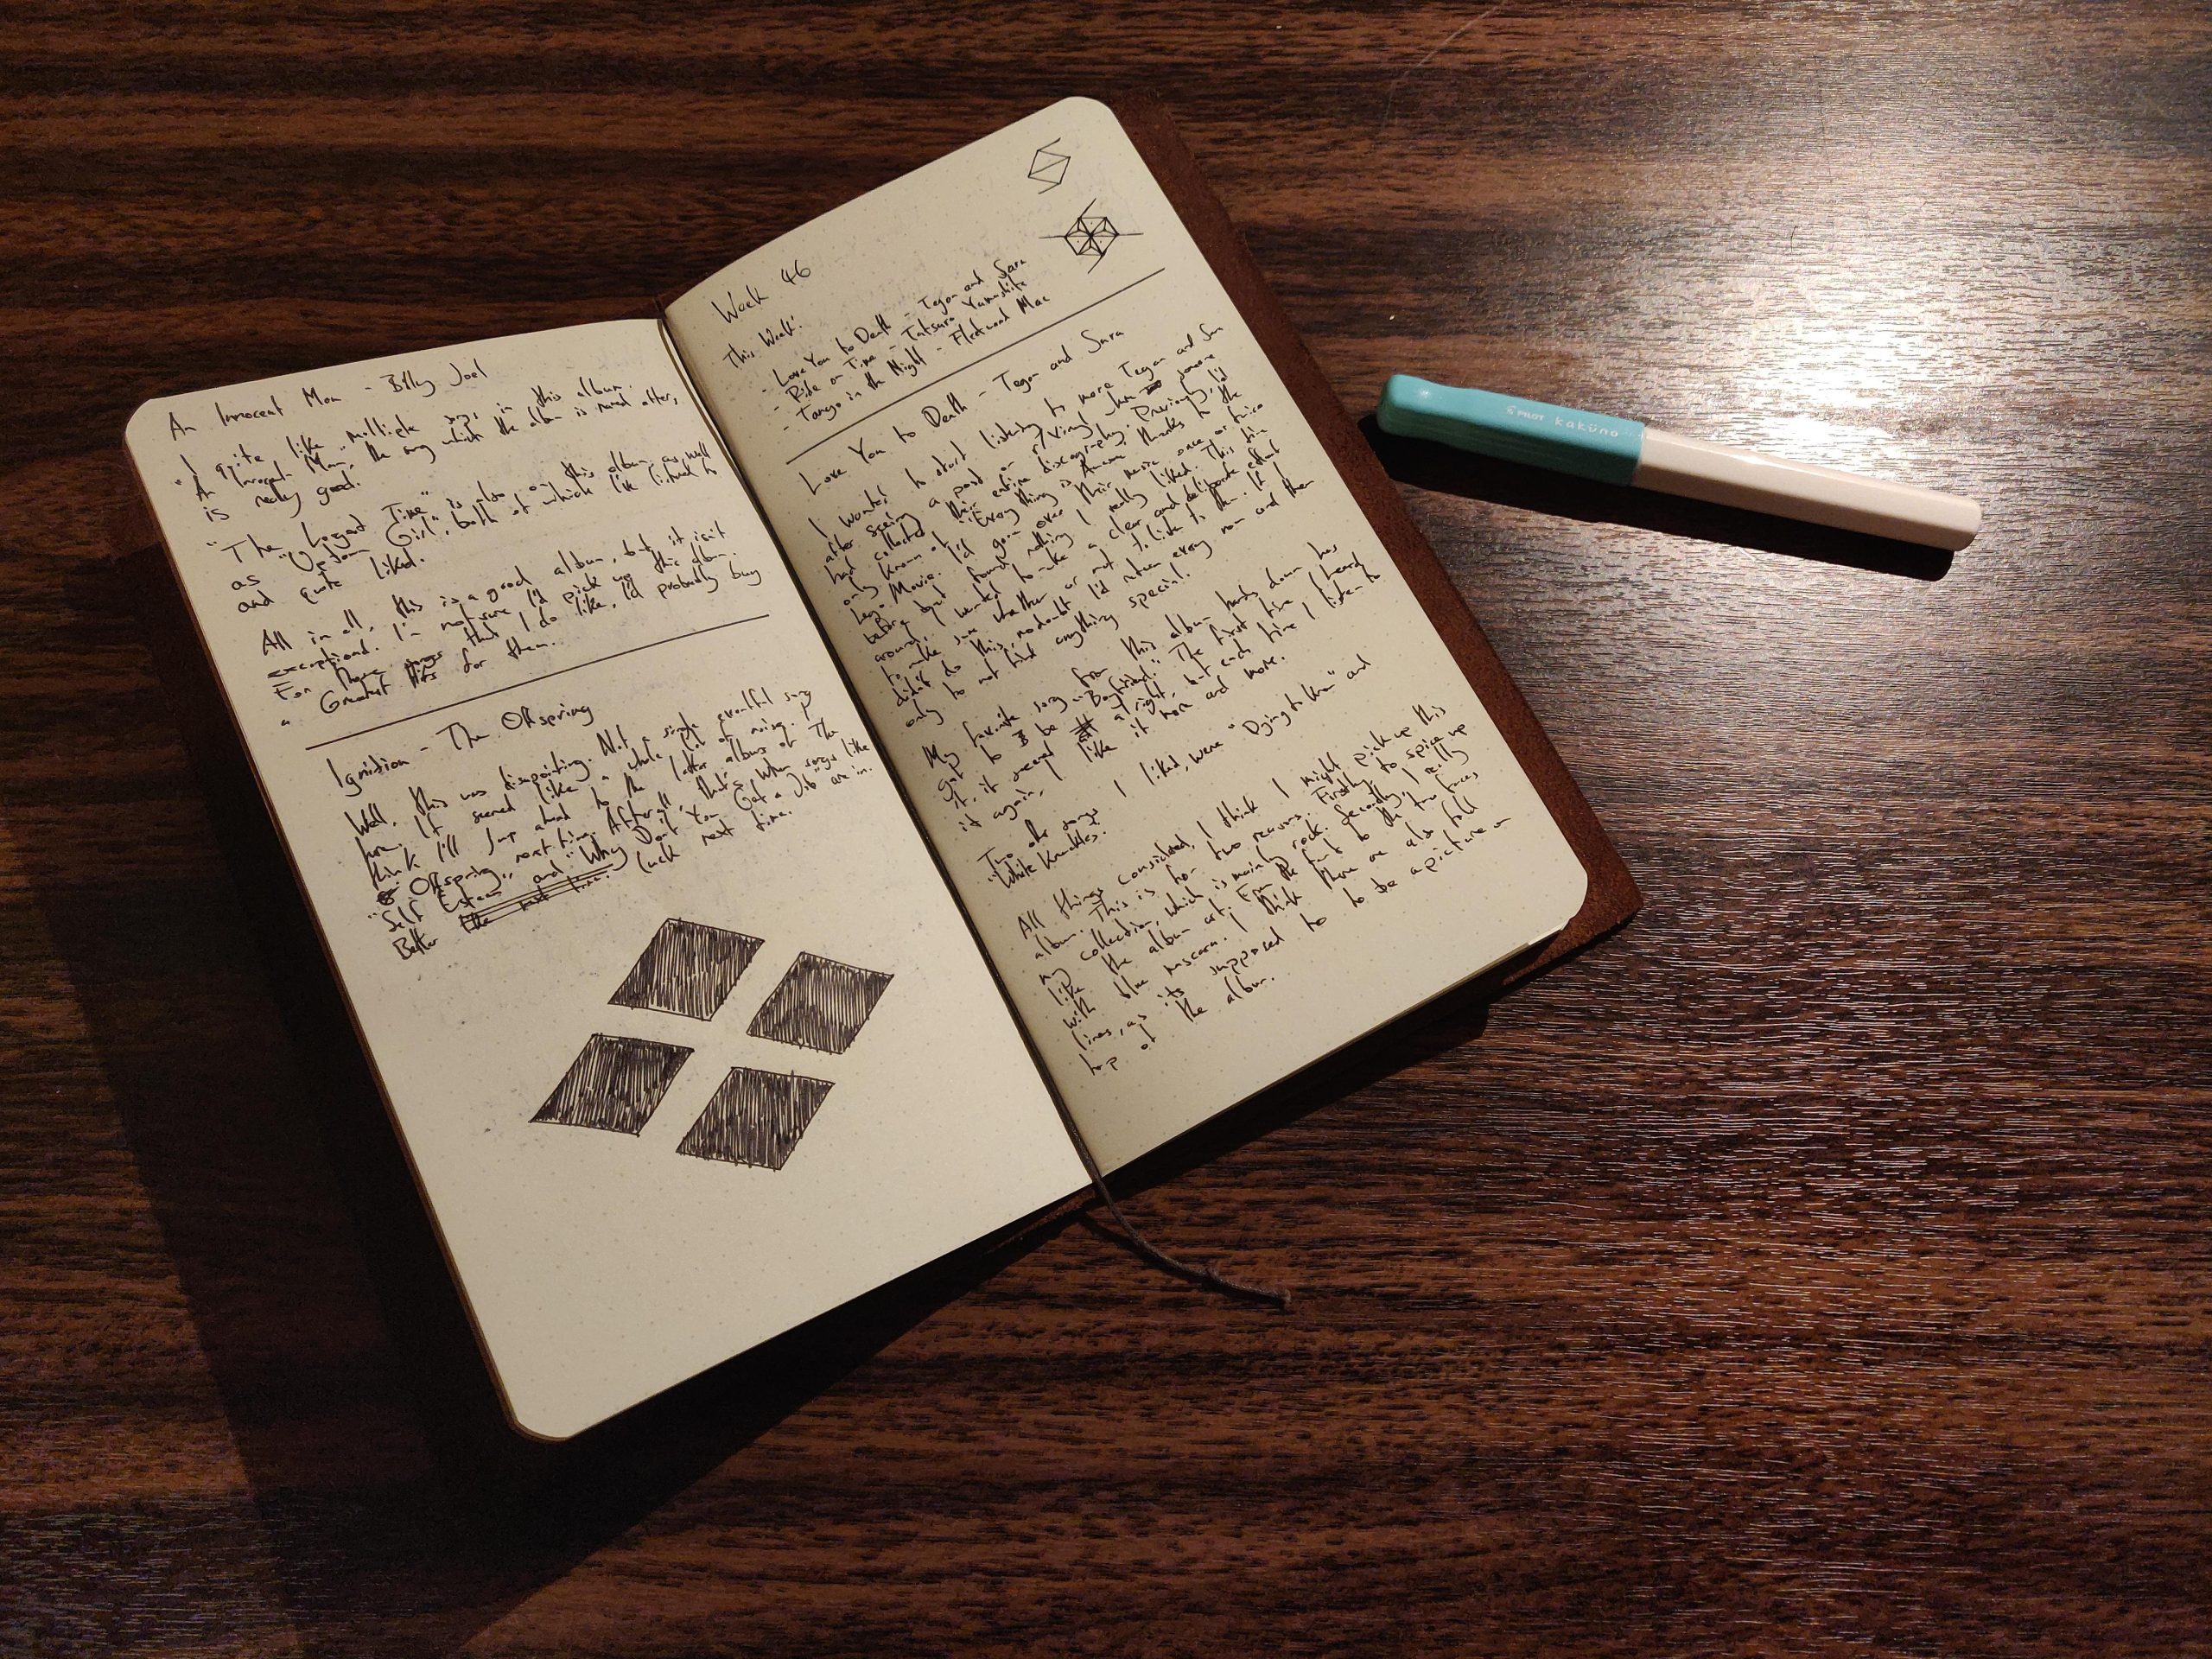 An Innocent Man - Billy Joel
I quite like multiple songs in this album.
"An Innocent Man", the song which the album is named after,
is really good.
"The Longest Time" is also on this album, as well
as "Uptown Girl", both of which I've listened to
and quite liked.
All in all, this is a good album, but it isn't
exceptional. I'm not sure I'd pick up this album.
For those songs that I do like, I'd probably buy
a Greatest Hits for them.
Ignition - The Offspring
Well, this was disapointing. Not a single fruitful song
here. It seemed like a whole lot of noise. I
think I'll jump ahead to the later albums of The
Offspring next time. Afterall, that's when songs like
"Self Esteem" and "Why Don't You Get a Job" are in.
Better luck next time.
Week 46
This Week:
- Love You to Death - Tegan and Sara
- Ride on Time - Tatsuro Yamashita
- Tango in the Night - Fleetwood Mac
Love You to Death - Tegan and Sara
I wanted to start listening to more Tegan and Sara
after seeing a post on r/Vinyl where someone
had collected their entire discography. Previously, I'd
only known of "Everything is Awesome" thanks to the
Lego Movie. I'd gone over their music once or twice
before but found nothing I really liked. This time
around, I wanted to make a clear and deliberate effort
to make sure whether or not to listen to them. If I
didn't do this, no doubt I'd return every now and then
only to not find anything special.
My favorite song from this album hands down has
got to be "Boyfriend." The first time I heard
it, it seemed alright, but each time I listen to
it again, I like it more and more.
Two other songs I liked were "Dying to Know" and
"White Knuckles."
All things considered, I think I might pick up this
album. This is for two reasons. Firstly, to spice up
my collection, which is mainly rock. Secondly, I really
like the album art. From the font to the two faces
with blue mascara. I think there are also fold
lines, as it's supposed to be a picture on
top of the album.
PILOT kaküno